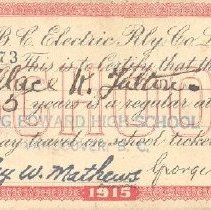 B.C. Electric Rly. Co. L
73
This is to certify that
lace H. Fatton
5 years is a regular at
G EDWARD HIGH SCHOOL
may travel on school ticket
W. Mathews George
1915